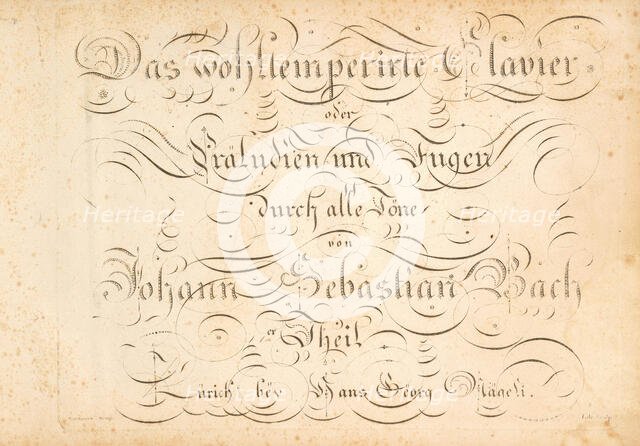 Das wohltemperirte Clavier
oder
Präludien und Fugen
durch alle Töne
von
Johann Sebastian Bach
er Theil
Zürich bey Hans Georg Nägeli.
Heritage Heritage
Heritage Heritage
Heritage Heritage